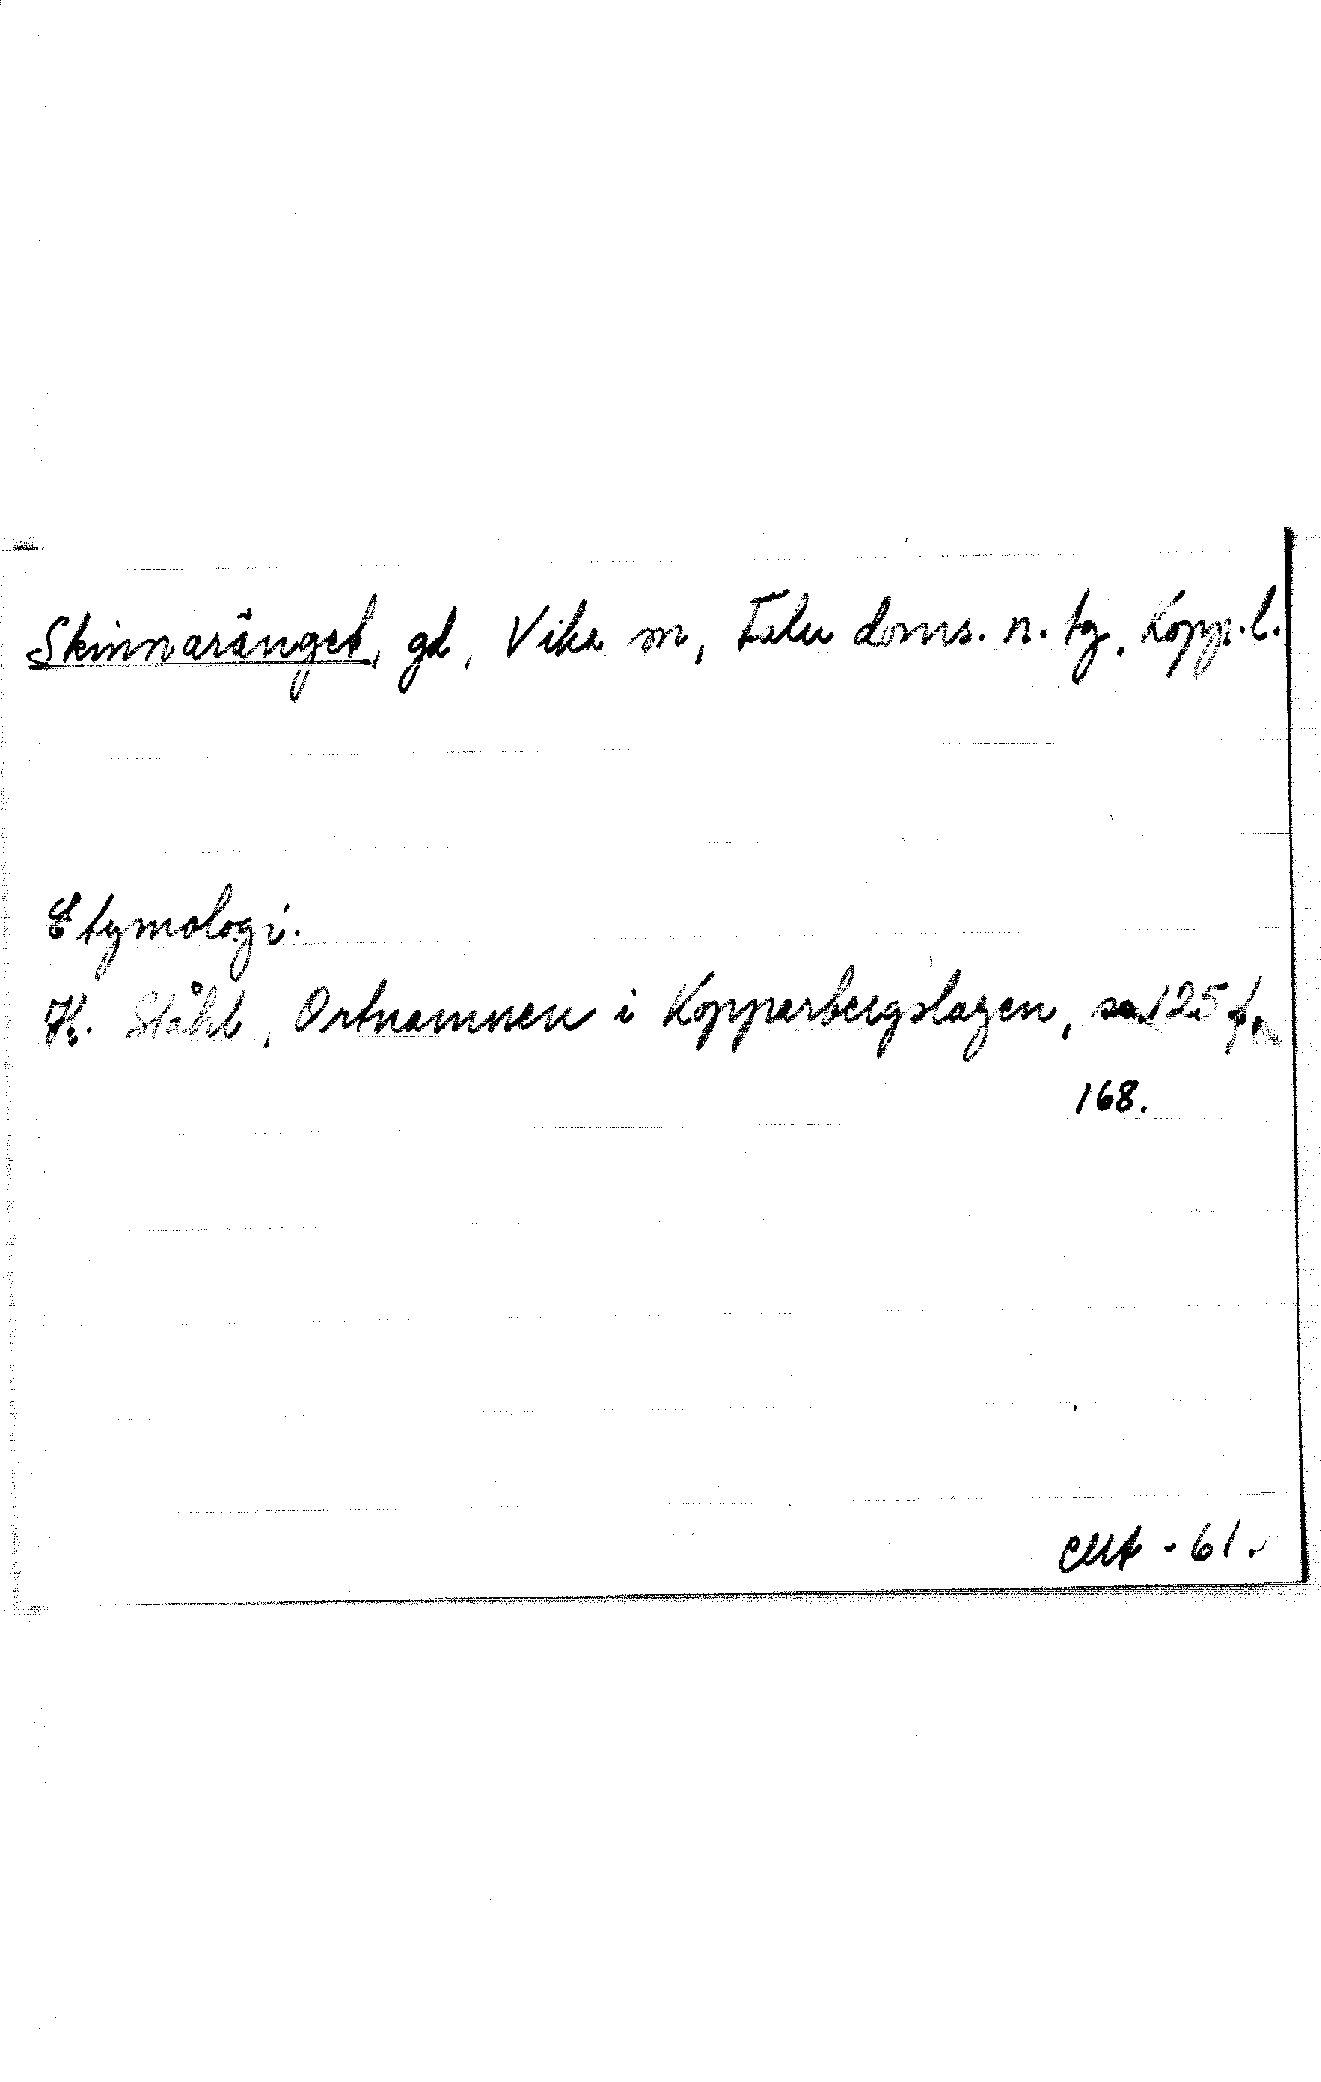 Skinnaränget, gd, Vika sn, Falu doms. n. tg. Kopp. l.
Etymologi.
H. Ståhl, Ortnamnen i Kopparbergslagen, s. 125 f.
168.
-61.